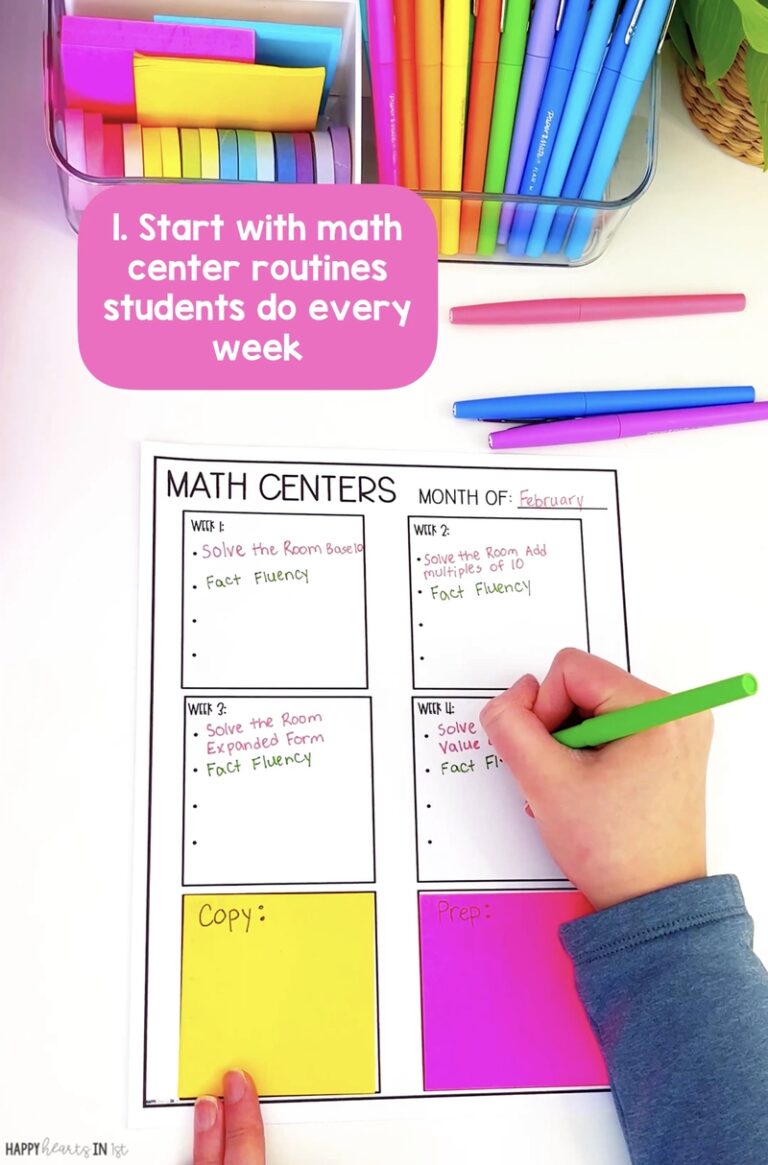 1. Start with math
center routines
students do every
week
MATH CENTERS
MONTH OF: February
WEEK 1:
• Solve the Room Base10
• Fact Fluency
•
•
WEEK 2:
• Solve the Room Add
multiples of 10
• Fact Fluency
•
•
WEEK 3:
• Solve the Room
Expanded Form
• Fact Fluency
•
•
WEEK 4:
• Solve
Value
• Fact Fl
•
•
Copy:
Prep:
HAPPY hearts IN 1st